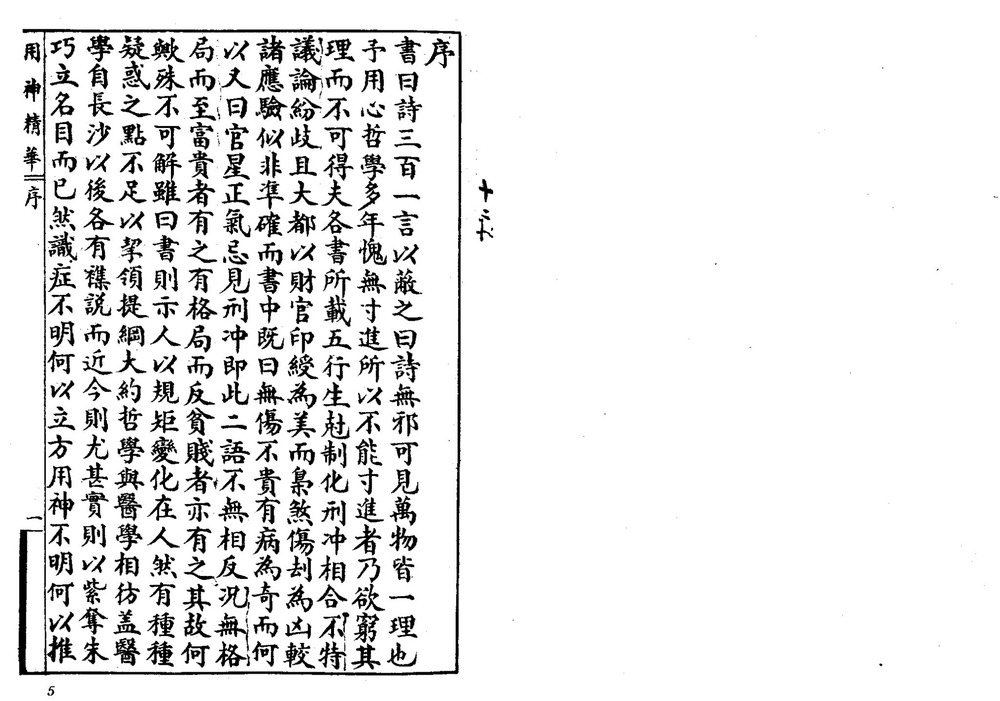 序
書曰詩三百一言以蔽之曰詩無邪可見萬物皆一理也
予用心哲學多年愧無寸進所以不能寸進者乃欲窮其
理而不可得夫各書所載五行生尅制化刑冲相合不特
議論紛歧且大都以財官印綬為美而梟煞傷刦為凶較
諸應驗似非準確而書中既曰無傷不貴有病為奇而何
以又曰官星正氣忌見刑冲即此二語不無相反况無格
局而至富貴者有之有格局而反貧賤者亦有之其故何
歟殊不可解雖曰書則示人以規矩變化在人然有種種
疑惑之點不足以挈領提綱大約哲學與醫學相彷盖醫
學自長沙以後各有襍説而近今則尤甚實則以紫奪朱
巧立名目而已然識症不明何以立方用神不明何以推
用神精華
序
一
5